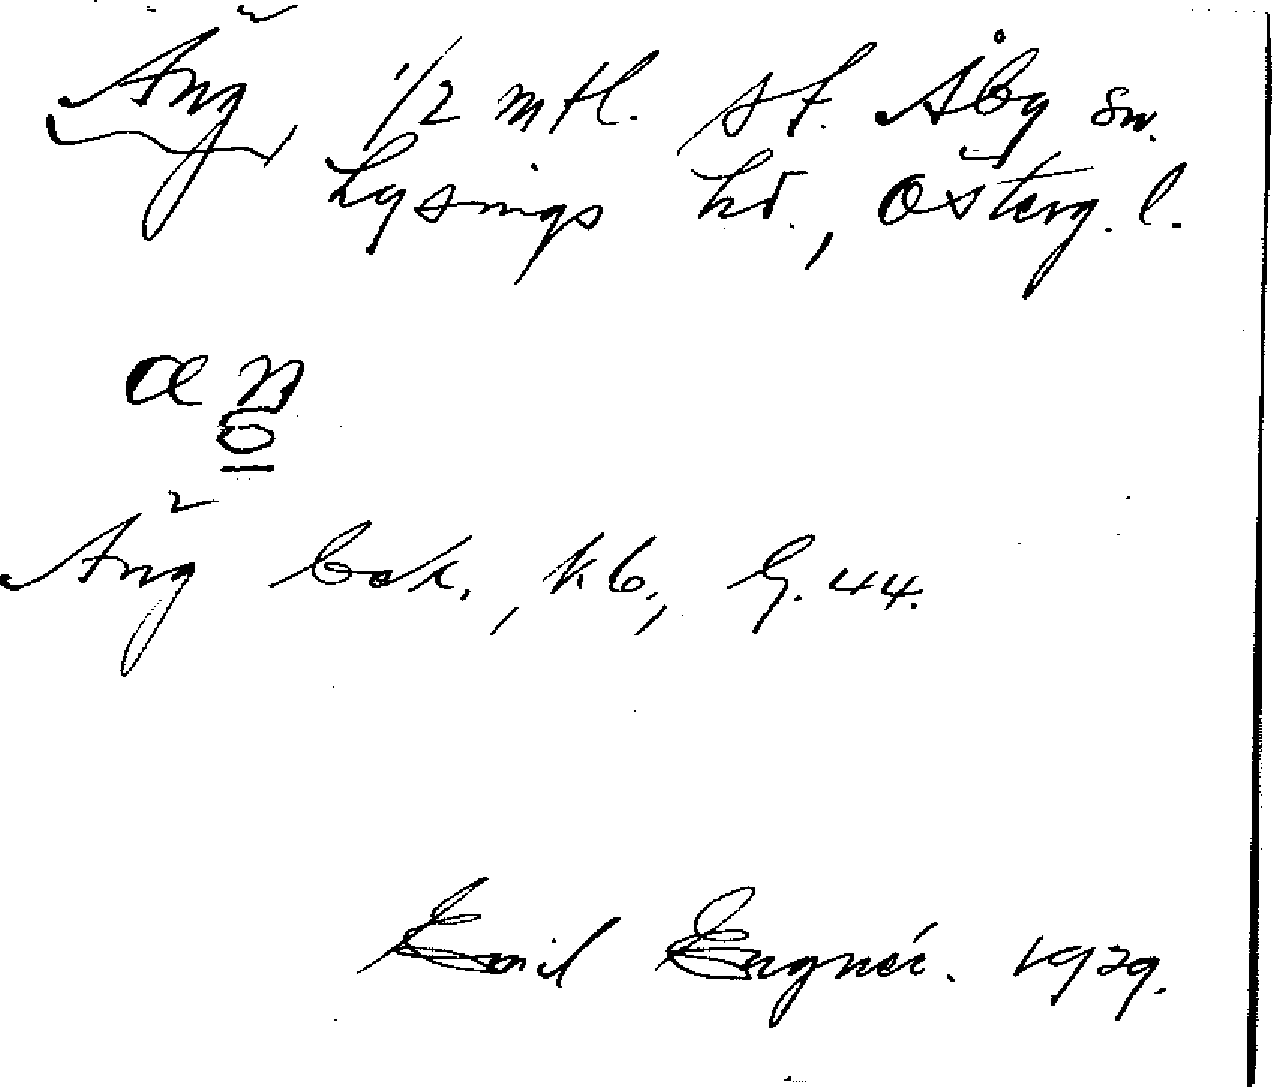 Äng, 1/2 mtl. st. Åby sn.
Lysings hd., Österg. l.
æŋ
Äng bek., kb., G. 44.
Emil Engnér. 1929.